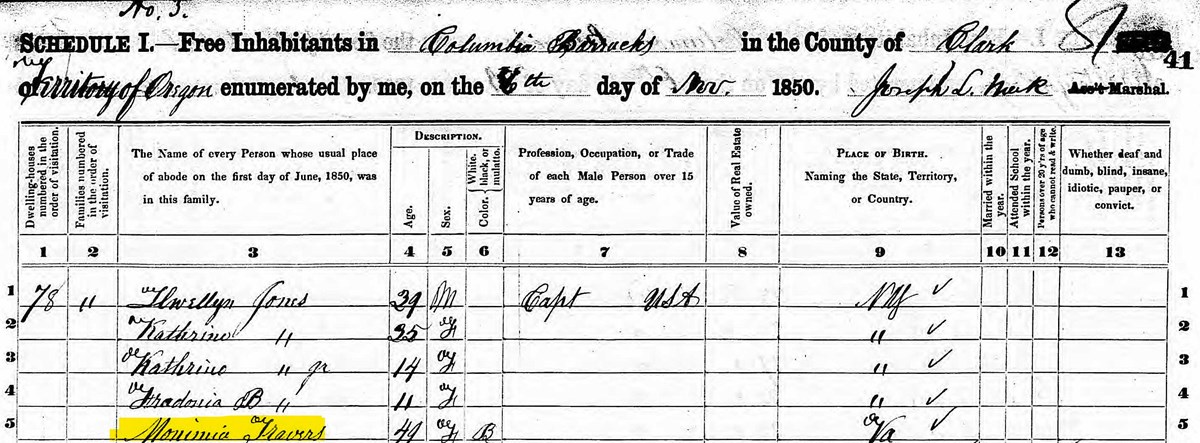 No. 3.
SCHEDULE I.—Free Inhabitants in Columbia Barracks in the County of Clark
Territory of Oregon enumerated by me, on the 6th day of Nov. 1850. Joseph L. Meek Ass't Marshal. 41
Dwelling-houses numbered in the order of visitation.
Families numbered in the order of visitation.
The Name of every Person whose usual place
of abode on the first day of June, 1850, was
in this family.
DESCRIPTION.
Age.
Sex.
Color. White, black, or mulatto.
Profession, Occupation, or Trade
of each Male Person over 15
years of age.
Value of Real Estate owned.
PLACE OF BIRTH.
Naming the State, Territory,
or Country.
Married within the year.
Attended School within the year.
Persons over 20 y'rs of age who cannot read & write.
Whether deaf and
dumb, blind, insane,
idiotic, pauper, or
convict.
1 2 3 4 5 6 7 8 9 10 11 12 13
1 78 " Llwellyn Jones 39 M Capt USA NY ✓ 1
2 Kathrine " 35 F " ✓ 2
3 Kathrine " jr 14 F " ✓ 3
4 Fradonia B " 11 F " ✓ 4
5 Monimia Travers 49 F B Va ✓ 5